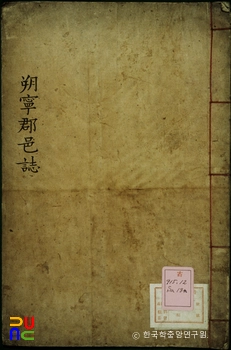 朔寧郡邑誌
915.12
© 한국학중앙연구원